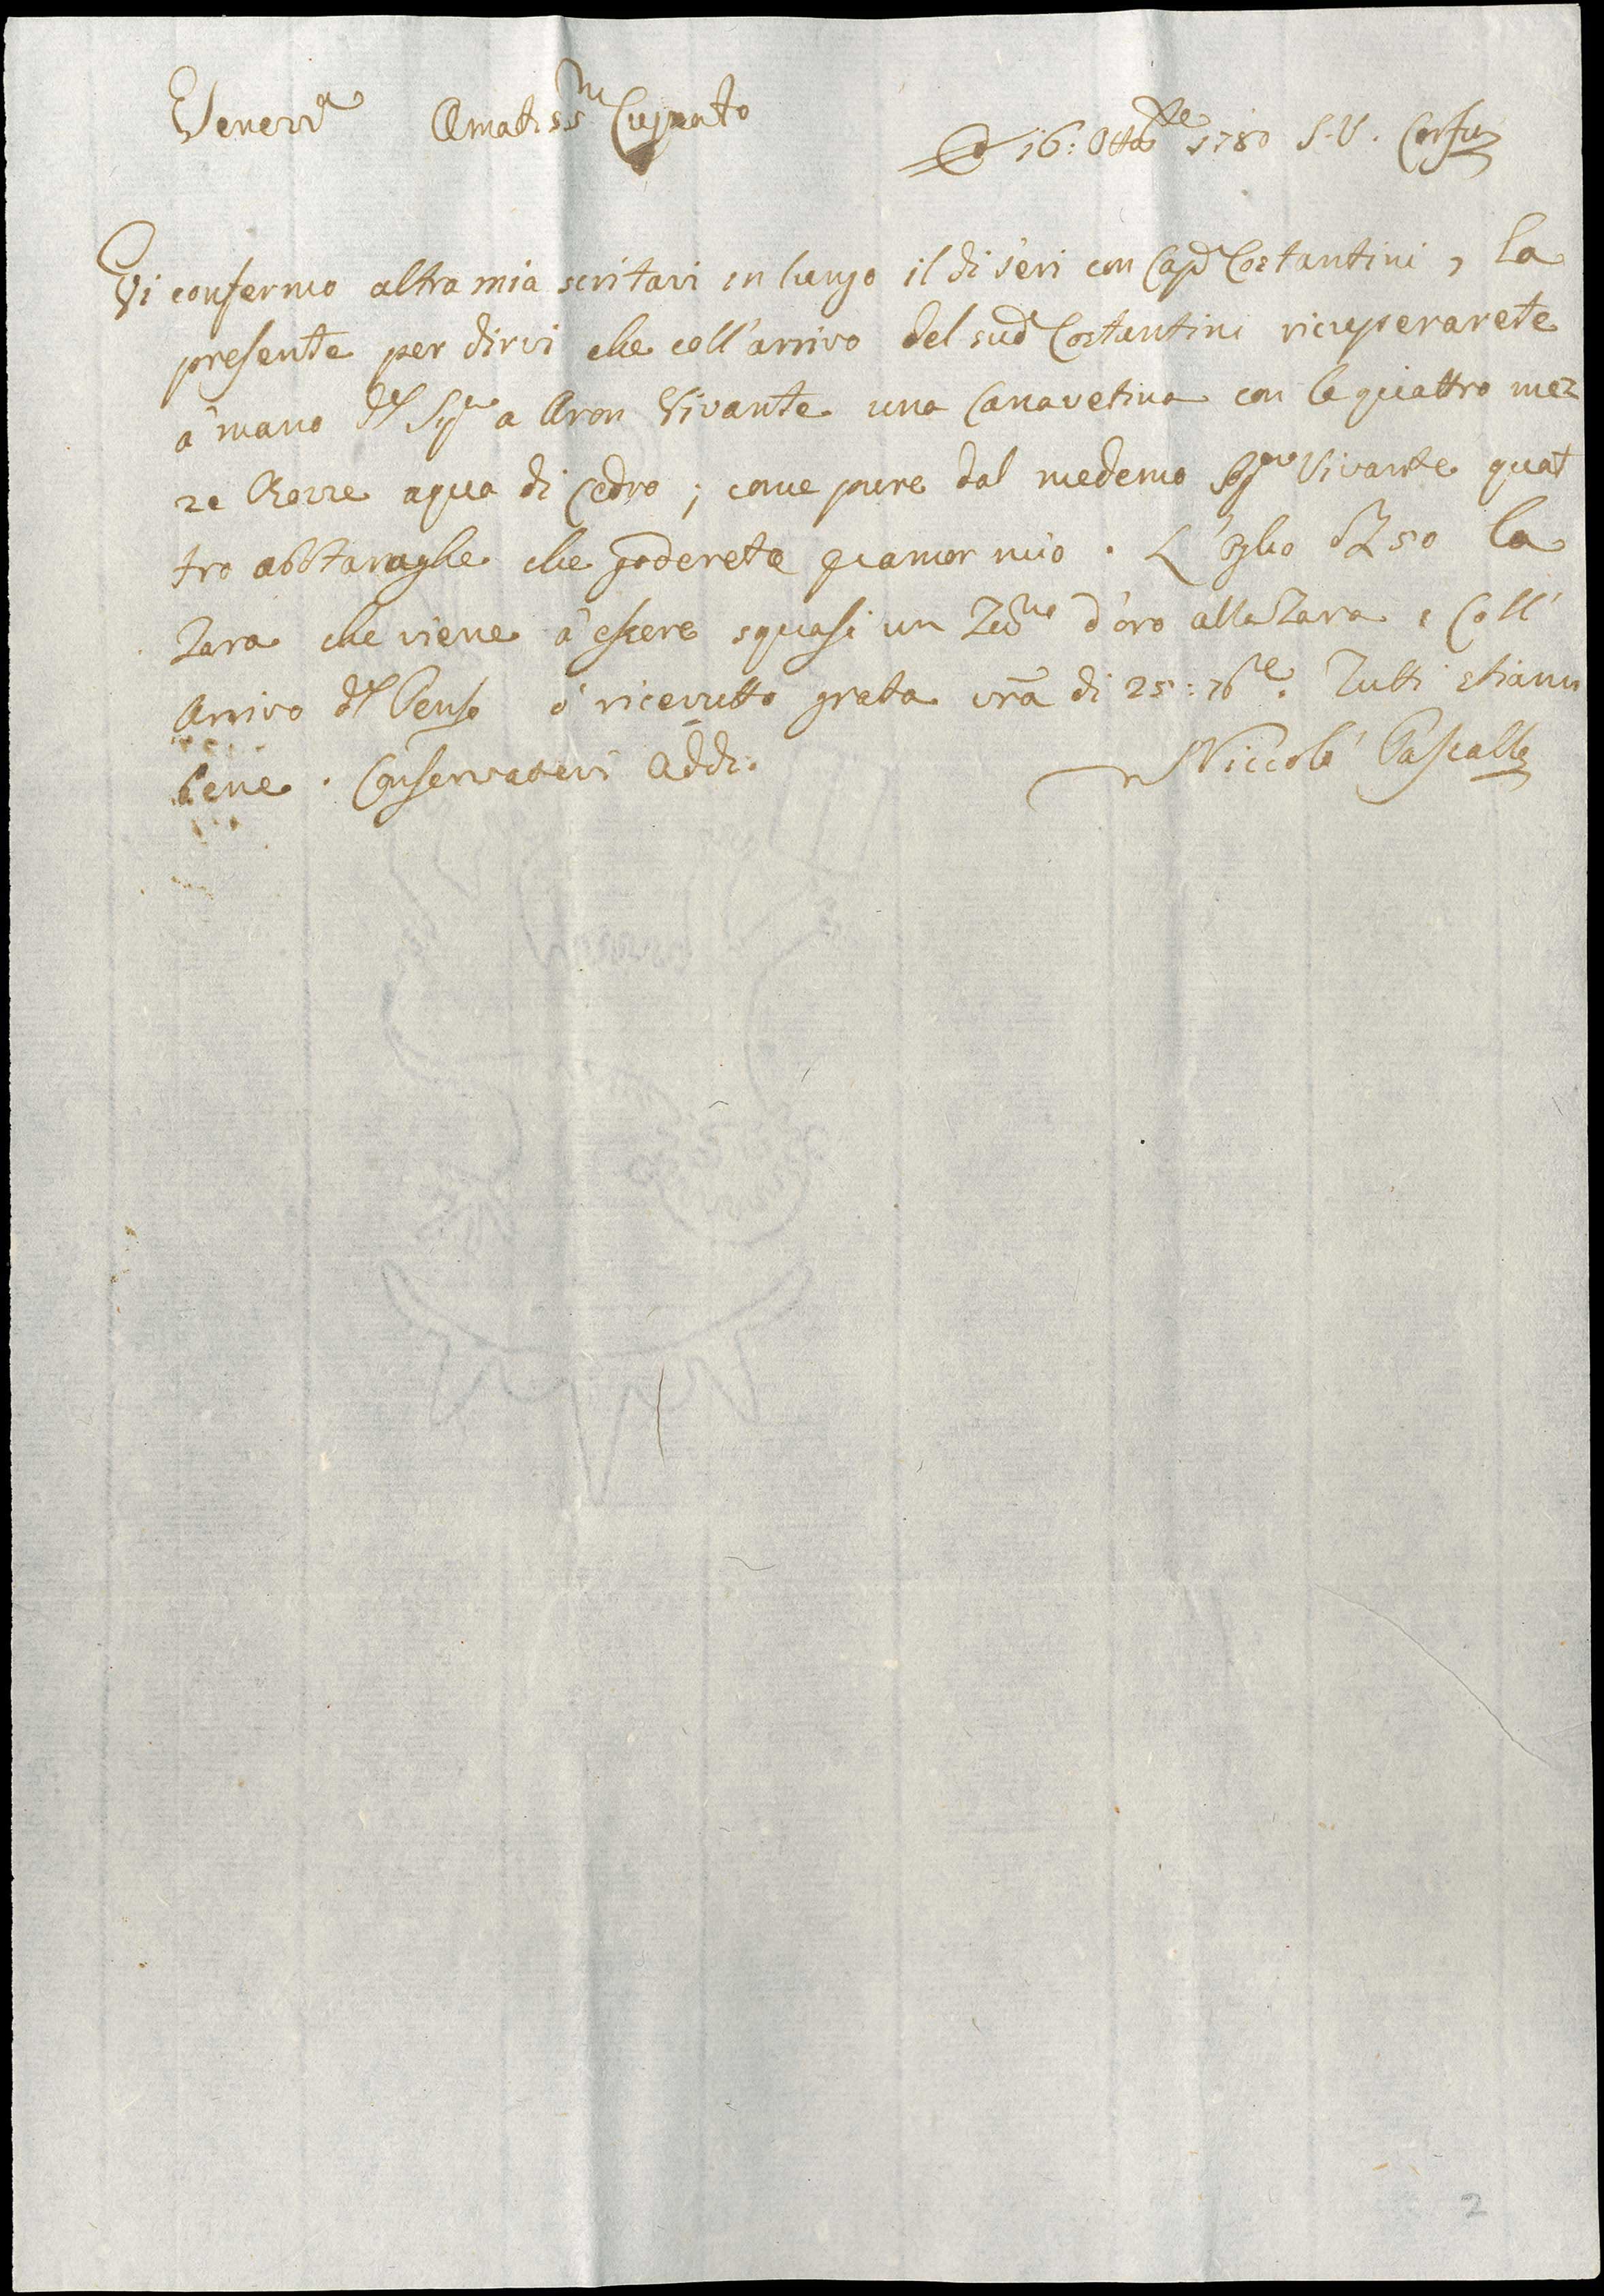 Venerd Amatiss.mo Cugnato
Ad 16: Ottbre 1780 S.V. Corfu
Vi confermo altra mia scritavi in lungo il di ieri con Capn Costantini, la
presente per dirvi che coll'arrivo del sud Costantini ricuperarete
a mano dl Sigr a Aron Vivante una Canavetina con le quattro mez
ze Bozze aqua di Cedro; come pure dal medemo Sigr Vivante quat
tro abbtaraghe che goderete p amor mio. L'Oglio 250 la
Zara che viene a essere squasi un Zechno d'oro alla Zara, Coll'
Arrivo dl Penso ó ricevutto grata vra di 25: 7bre. Tutti stiamo
bene. Conservatevi Addi:
Niccolò Pascalli
2